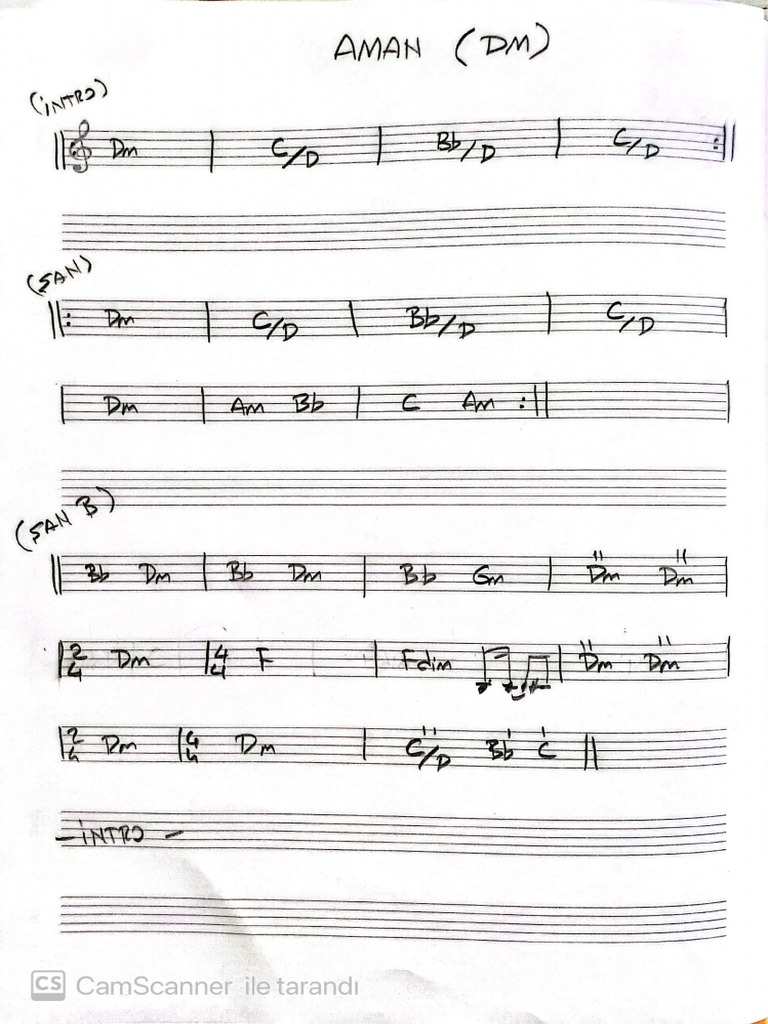 AMAN (DM)
(İNTRO)
Dm C/D Bb/D C/D
(ŞAN)
Dm C/D Bb/D C/D
Dm Am Bb C Am
(ŞAN B)
Bb Dm Bb Dm Bb Gm Dm Dm
2/4 Dm 4/4 F Fdim Dm Dm
2/4 Dm 4/4 Dm C/D Bb C
- İNTRO -
CS CamScanner ile tarandı